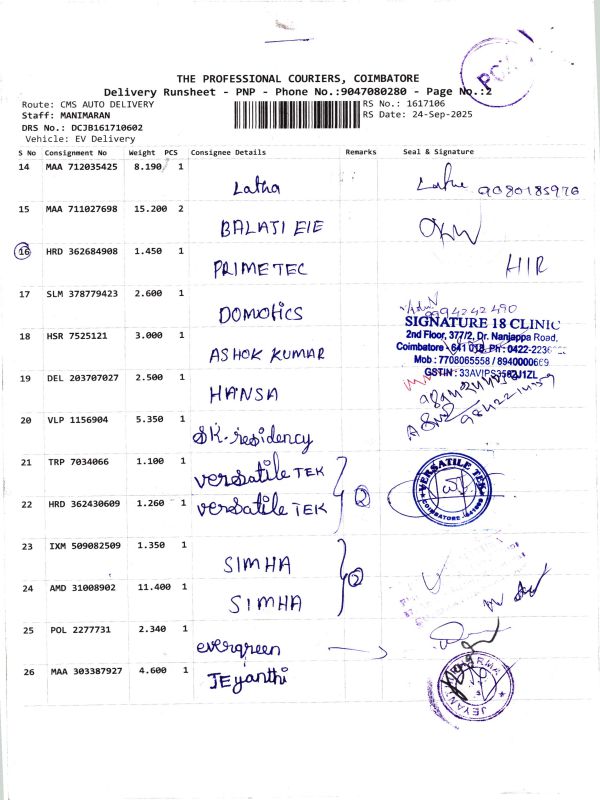 PCX
THE PROFESSIONAL COURIERS, COIMBATORE
Delivery Runsheet - PNP - Phone No.:9047080280 - Page No.:2
Route: CMS AUTO DELIVERY
RS No.: 1617106
Staff: MANIMARAN
RS Date: 24-Sep-2025
DRS No.: DCJB161710602
Vehicle: EV Delivery
S No Consignment No Weight PCS Consignee Details Remarks Seal & Signature
14 MAA 712035425 8.190 1 Latha 9080185976
15 MAA 711027698 15.200 2 BALATI EIE
16 HRD 362684908 1.450 1 PRIMETEC HIR
17 SLM 378779423 2.600 1 DOMOTICS
9994242490
SIGNATURE 18 CLINIC
2nd Floor, 377/2, Dr. Nanjappa Road,
18 HSR 7525121 3.000 1 ASHOK KUMAR
Coimbatore - 641 018. Ph: 0422-2236
Mob : 7708065558 / 8940000669
GSTIN : 33AVIPS3562J1ZL
19 DEL 203707027 2.500 1 HANSA
20 VLP 1156904 5.350 1 SK. residency
21 TRP 7034066 1.100 1 versatile TEK
22 HRD 362430609 1.260 1 versatile TEK 2
VERSATILE TEK
COIMBATORE
23 IXM 509082509 1.350 1 SIMHA
24 AMD 31008902 11.400 1 SIMHA 2
25 POL 2277731 2.340 1 evergreen
26 MAA 303387927 4.600 1 JEyanthi